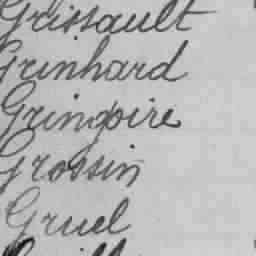 Grissault
Grinhard
Gringoire
Grossin
Gruel